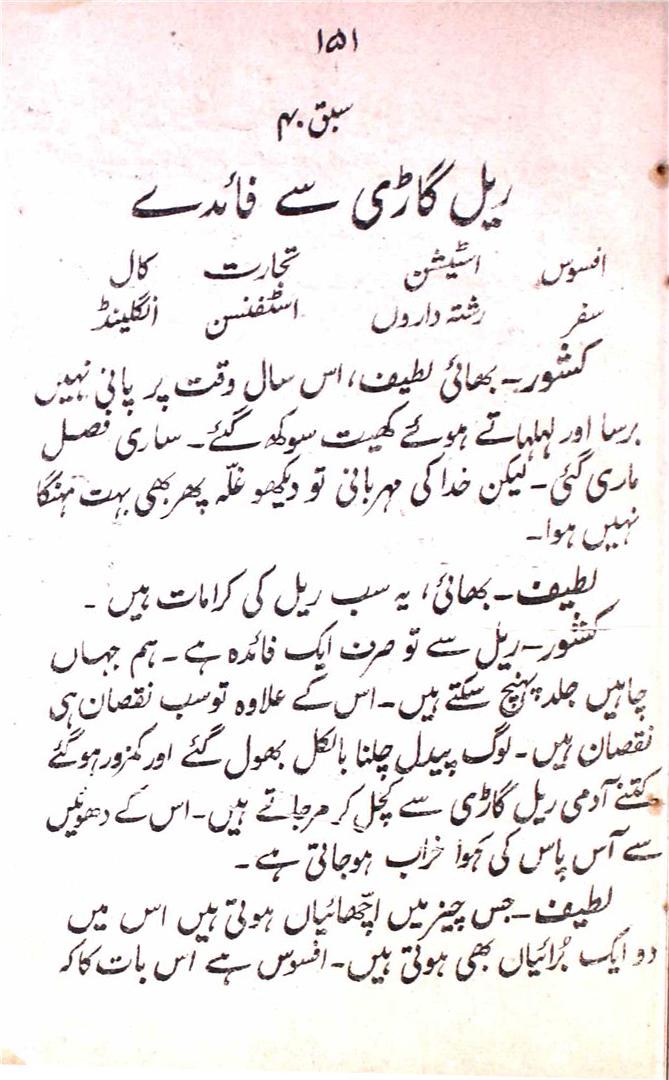 ۱۵۱
سبق ۴۰
ریل گاڑی سے فائدے
افسوس اسٹیشن تجارت کال
سفر رشتہ داروں اسٹفنسن انگلینڈ
کشور۔ بھائی لطیف، اس سال وقت پر پانی نہیں
برسا اور لہلہاتے ہوئے کھیت سوکھ گئے۔ ساری فصل
ماری گئی۔ لیکن خدا کی مہربانی تو دیکھو غلّہ پھر بھی بہت مہنگا
نہیں ہوا۔
لطیف۔ بھائی، یہ سب ریل کی کرامات ہیں۔
کشور۔ ریل سے تو صرف ایک فائدہ ہے۔ ہم جہاں
چاہیں جلد پہنچ سکتے ہیں۔ اس کے علاوہ تو سب نقصان ہی
نقصان ہیں۔ لوگ پیدل چلنا بالکل بھول گئے اور کمزور ہو گئے
کتنے آدمی ریل گاڑی سے کچل کر مر جاتے ہیں۔ اس کے دھوئیں
سے آس پاس کی ہوا خراب ہو جاتی ہے۔
لطیف۔ جس چیز میں اچھّائیاں ہوتی ہیں اس میں
دو ایک بُرائیاں بھی ہوتی ہیں۔ افسوس ہے اس بات کا کہ